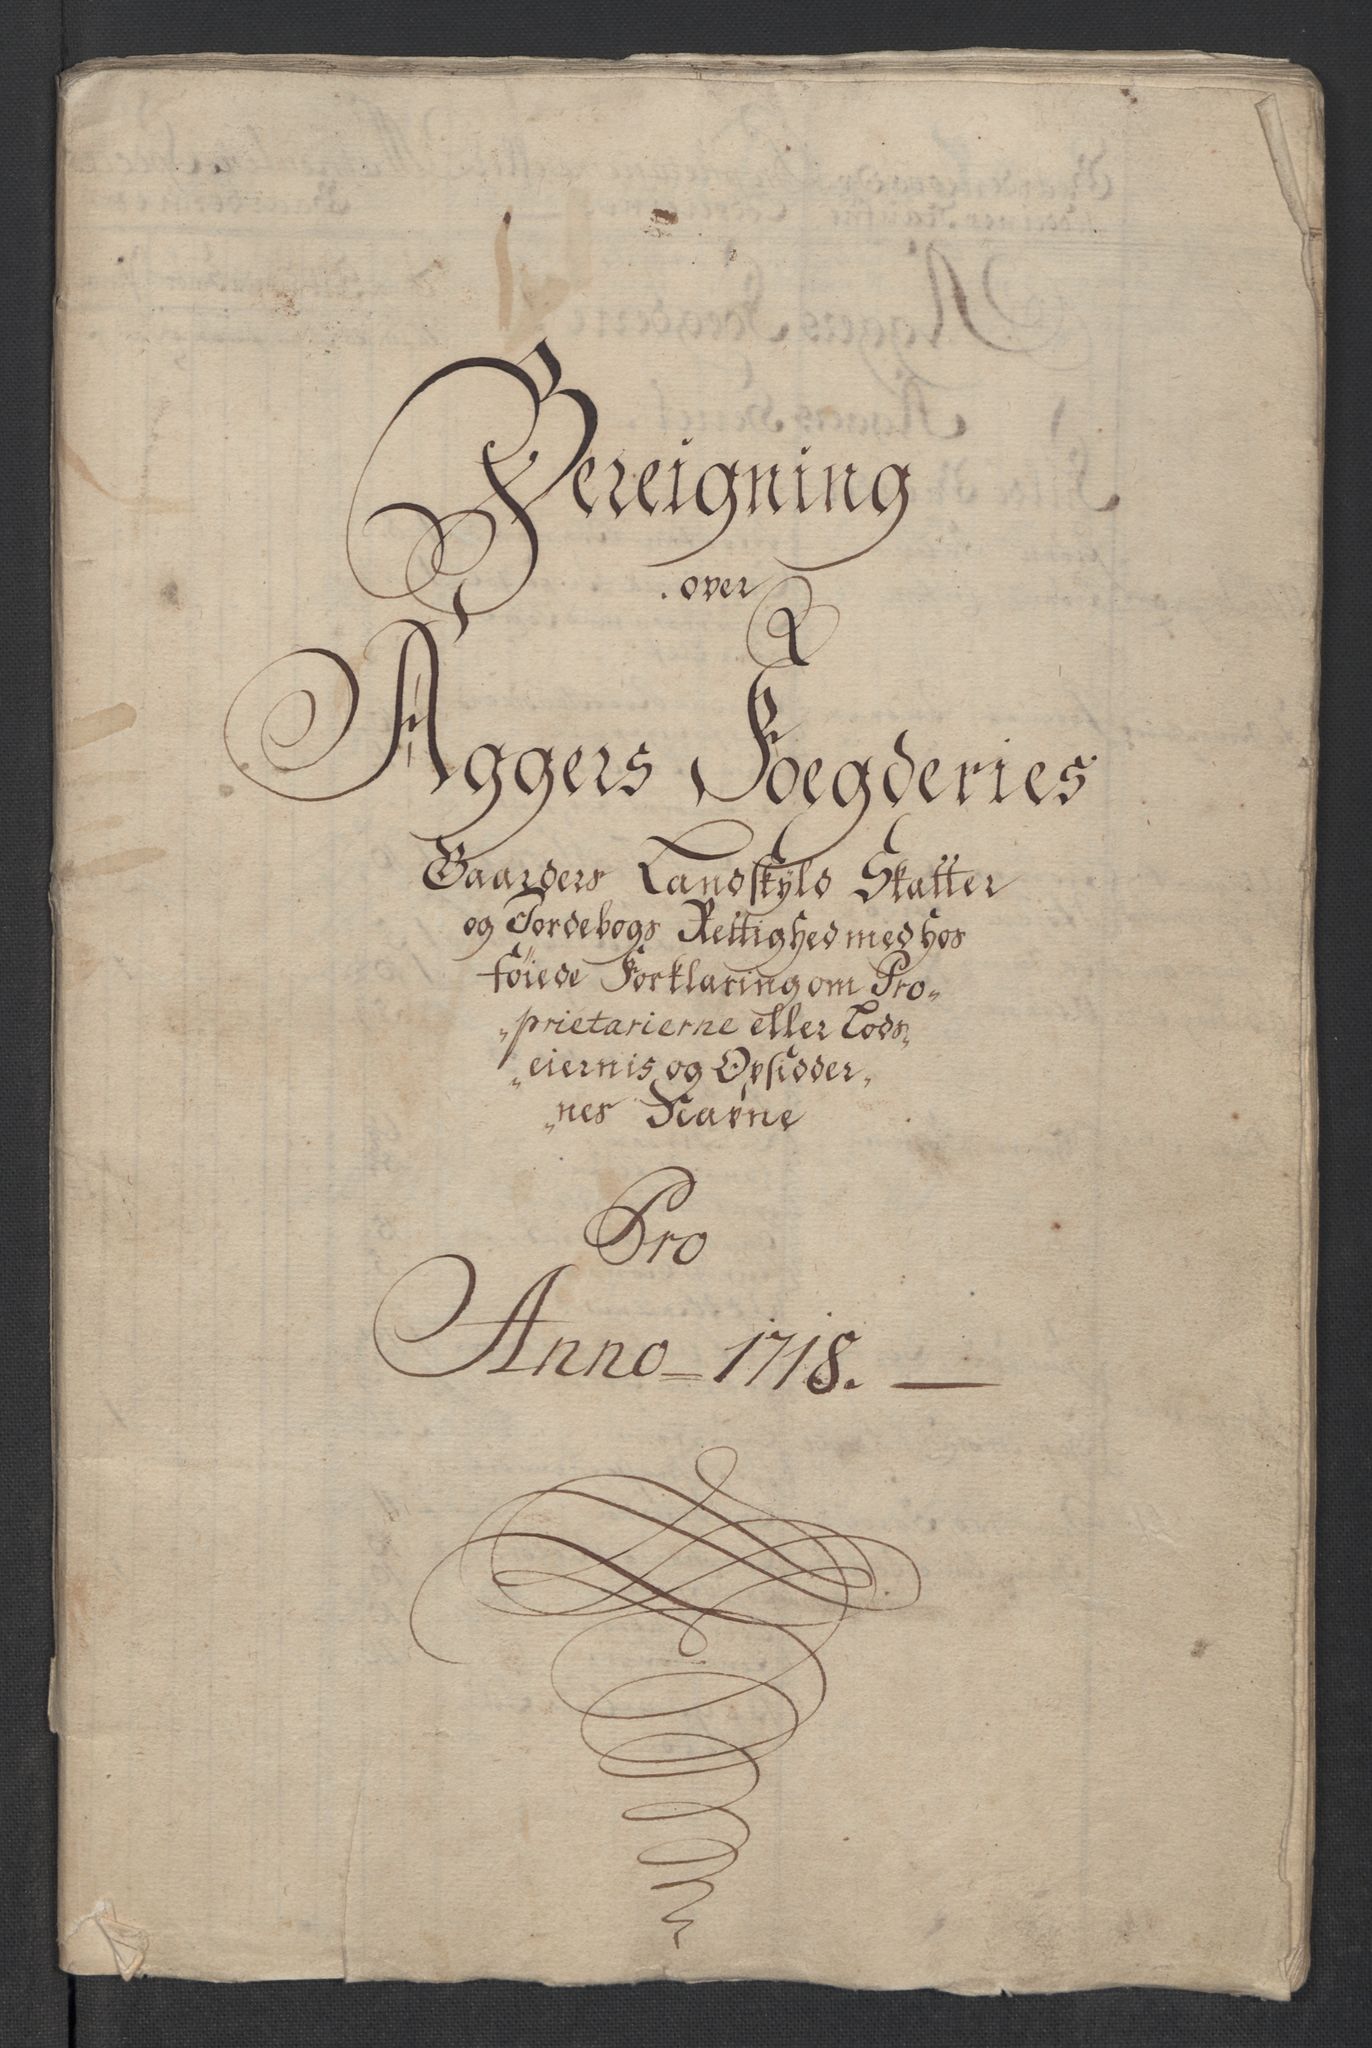 Bereigning
over
Aggers Foegderies
Gaarders Landskyld Skatter
og Jordebogs Rettighed med hos
föiede Forklaring om Pro„
„prietarierne eller Lods„
„eiernis og Opsidder„
„nes Navne
Pro
Anno = 1718. —